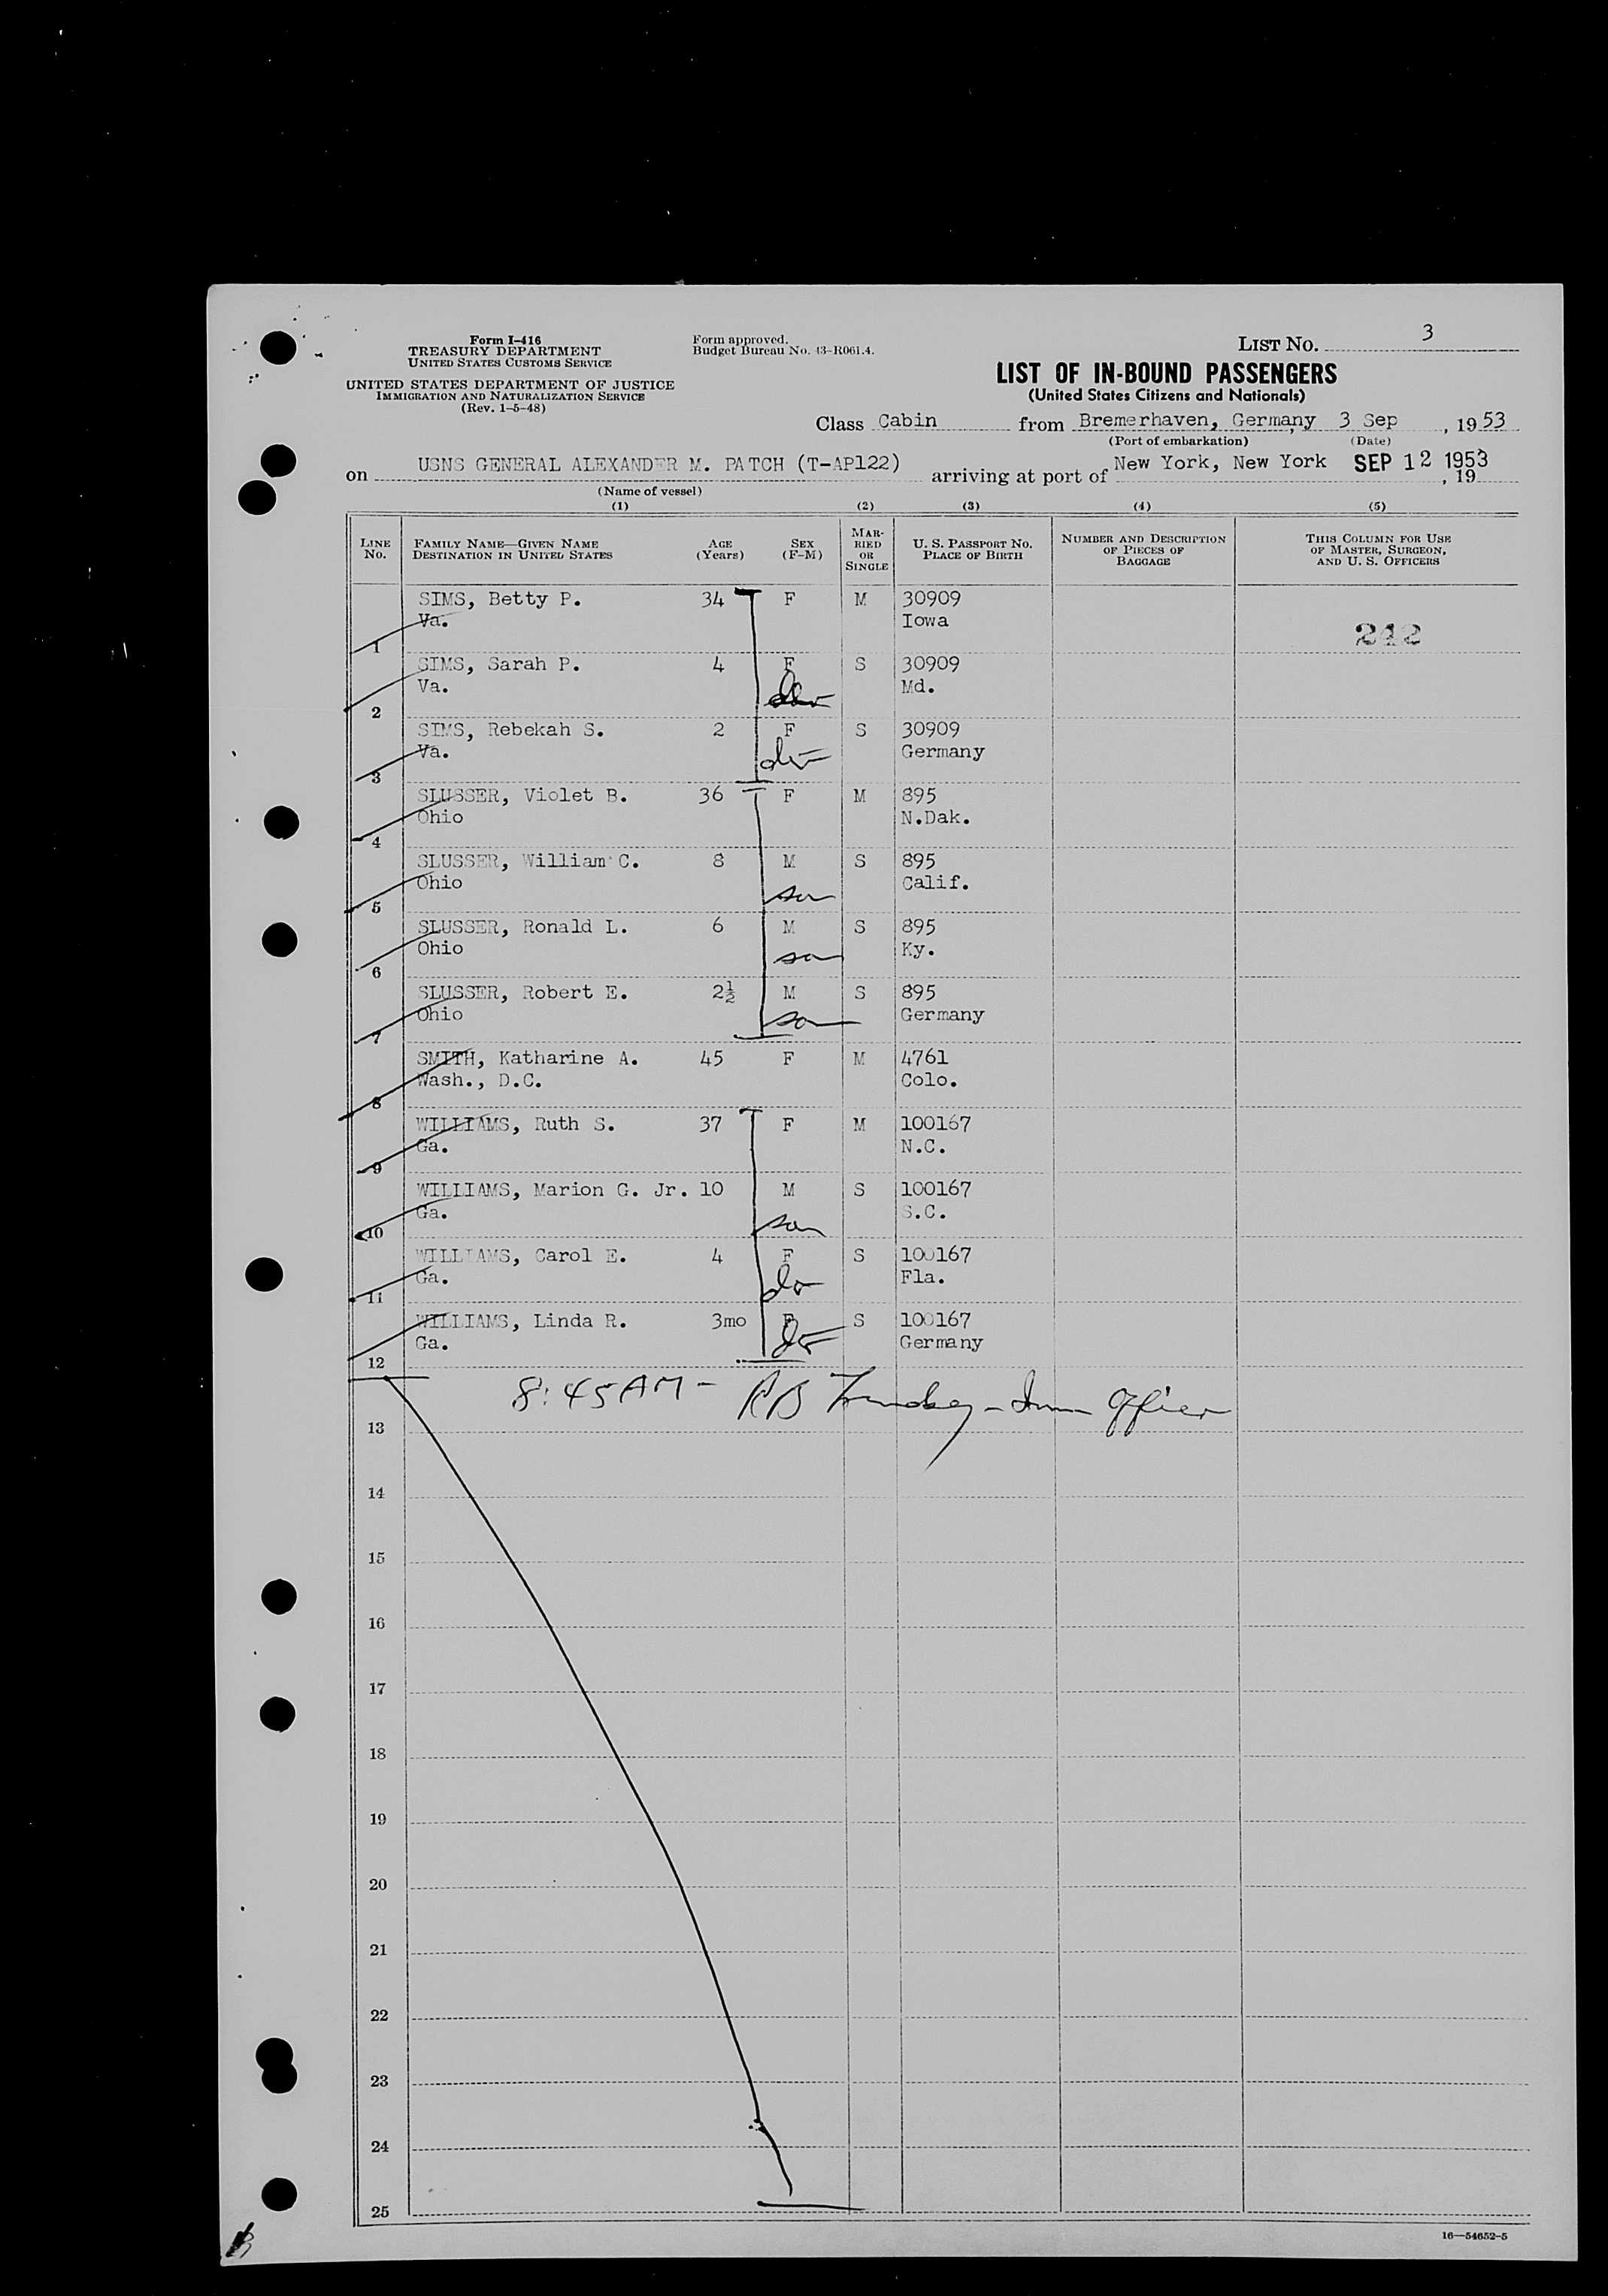 Form I-416
TREASURY DEPARTMENT
UNITED STATES CUSTOMS SERVICE
UNITED STATES DEPARTMENT OF JUSTICE
IMMIGRATION AND NATURALIZATION SERVICE
(Rev. 1-5-48)
Form approved.
Budget Bureau No. 43-R061.4.
LIST NO. 3
LIST OF IN-BOUND PASSENGERS
(United States Citizens and Nationals)
Class Cabin from Bremerhaven, Germany, 3 Sep, 1953
(Port of embarkation) (Date)
on USNS GENERAL ALEXANDER M. PATCH (T-AP122) arriving at port of New York, New York SEP 12 1953, 19
(Name of vessel)
(1) (2) (3) (4) (5)
LINE NO. FAMILY NAME—GIVEN NAME DESTINATION IN UNITED STATES AGE (Years) SEX (F-M) MARRIED OR SINGLE U. S. PASSPORT NO. PLACE OF BIRTH NUMBER AND DESCRIPTION OF PIECES OF BAGGAGE THIS COLUMN FOR USE OF MASTER, SURGEON, AND U. S. OFFICERS
SIMS, Betty P. 34 F M 30909
1 Va. Iowa 242
SIMS, Sarah P. 4 F S 30909
2 Va. Md.
SIMS, Rebekah S. 2 F S 30909
3 Va. Germany
SLUSSER, Violet B. 36 F M 895
4 Ohio N.Dak.
SLUSSER, William C. 8 M S 895
5 Ohio son Calif.
SLUSSER, Ronald L. 6 M S 895
6 Ohio son Ky.
SLUSSER, Robert E. 2½ M S 895
7 Ohio son Germany
SMITH, Katharine A. 45 F M 4761
8 Wash., D.C. Colo.
WILLIAMS, Ruth S. 37 F M 100167
9 Ga. N.C.
WILLIAMS, Marion G. Jr. 10 M S 100167
10 Ga. son S.C.
WILLIAMS, Carol E. 4 F S 100167
11 Ga. Fla.
WILLIAMS, Linda R. 3mo F S 100167
12 Ga. Germany
8:45 AM - RB Imm Officer
13
14
15
16
17
18
19
20
21
22
23
24
25
16—54652-5